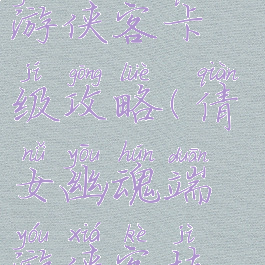 游侠客卡
jí gōng lüè qiàn
级攻略(倩
nǚ yōu hún duān
女幽魂端
yóu xiá kè jí
游侠客技